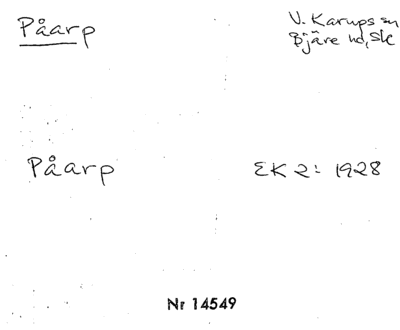 Påarp
V. Karups sn
Bjäre hd, Sk
Påarp
EK 2: 1928
Nr 14549